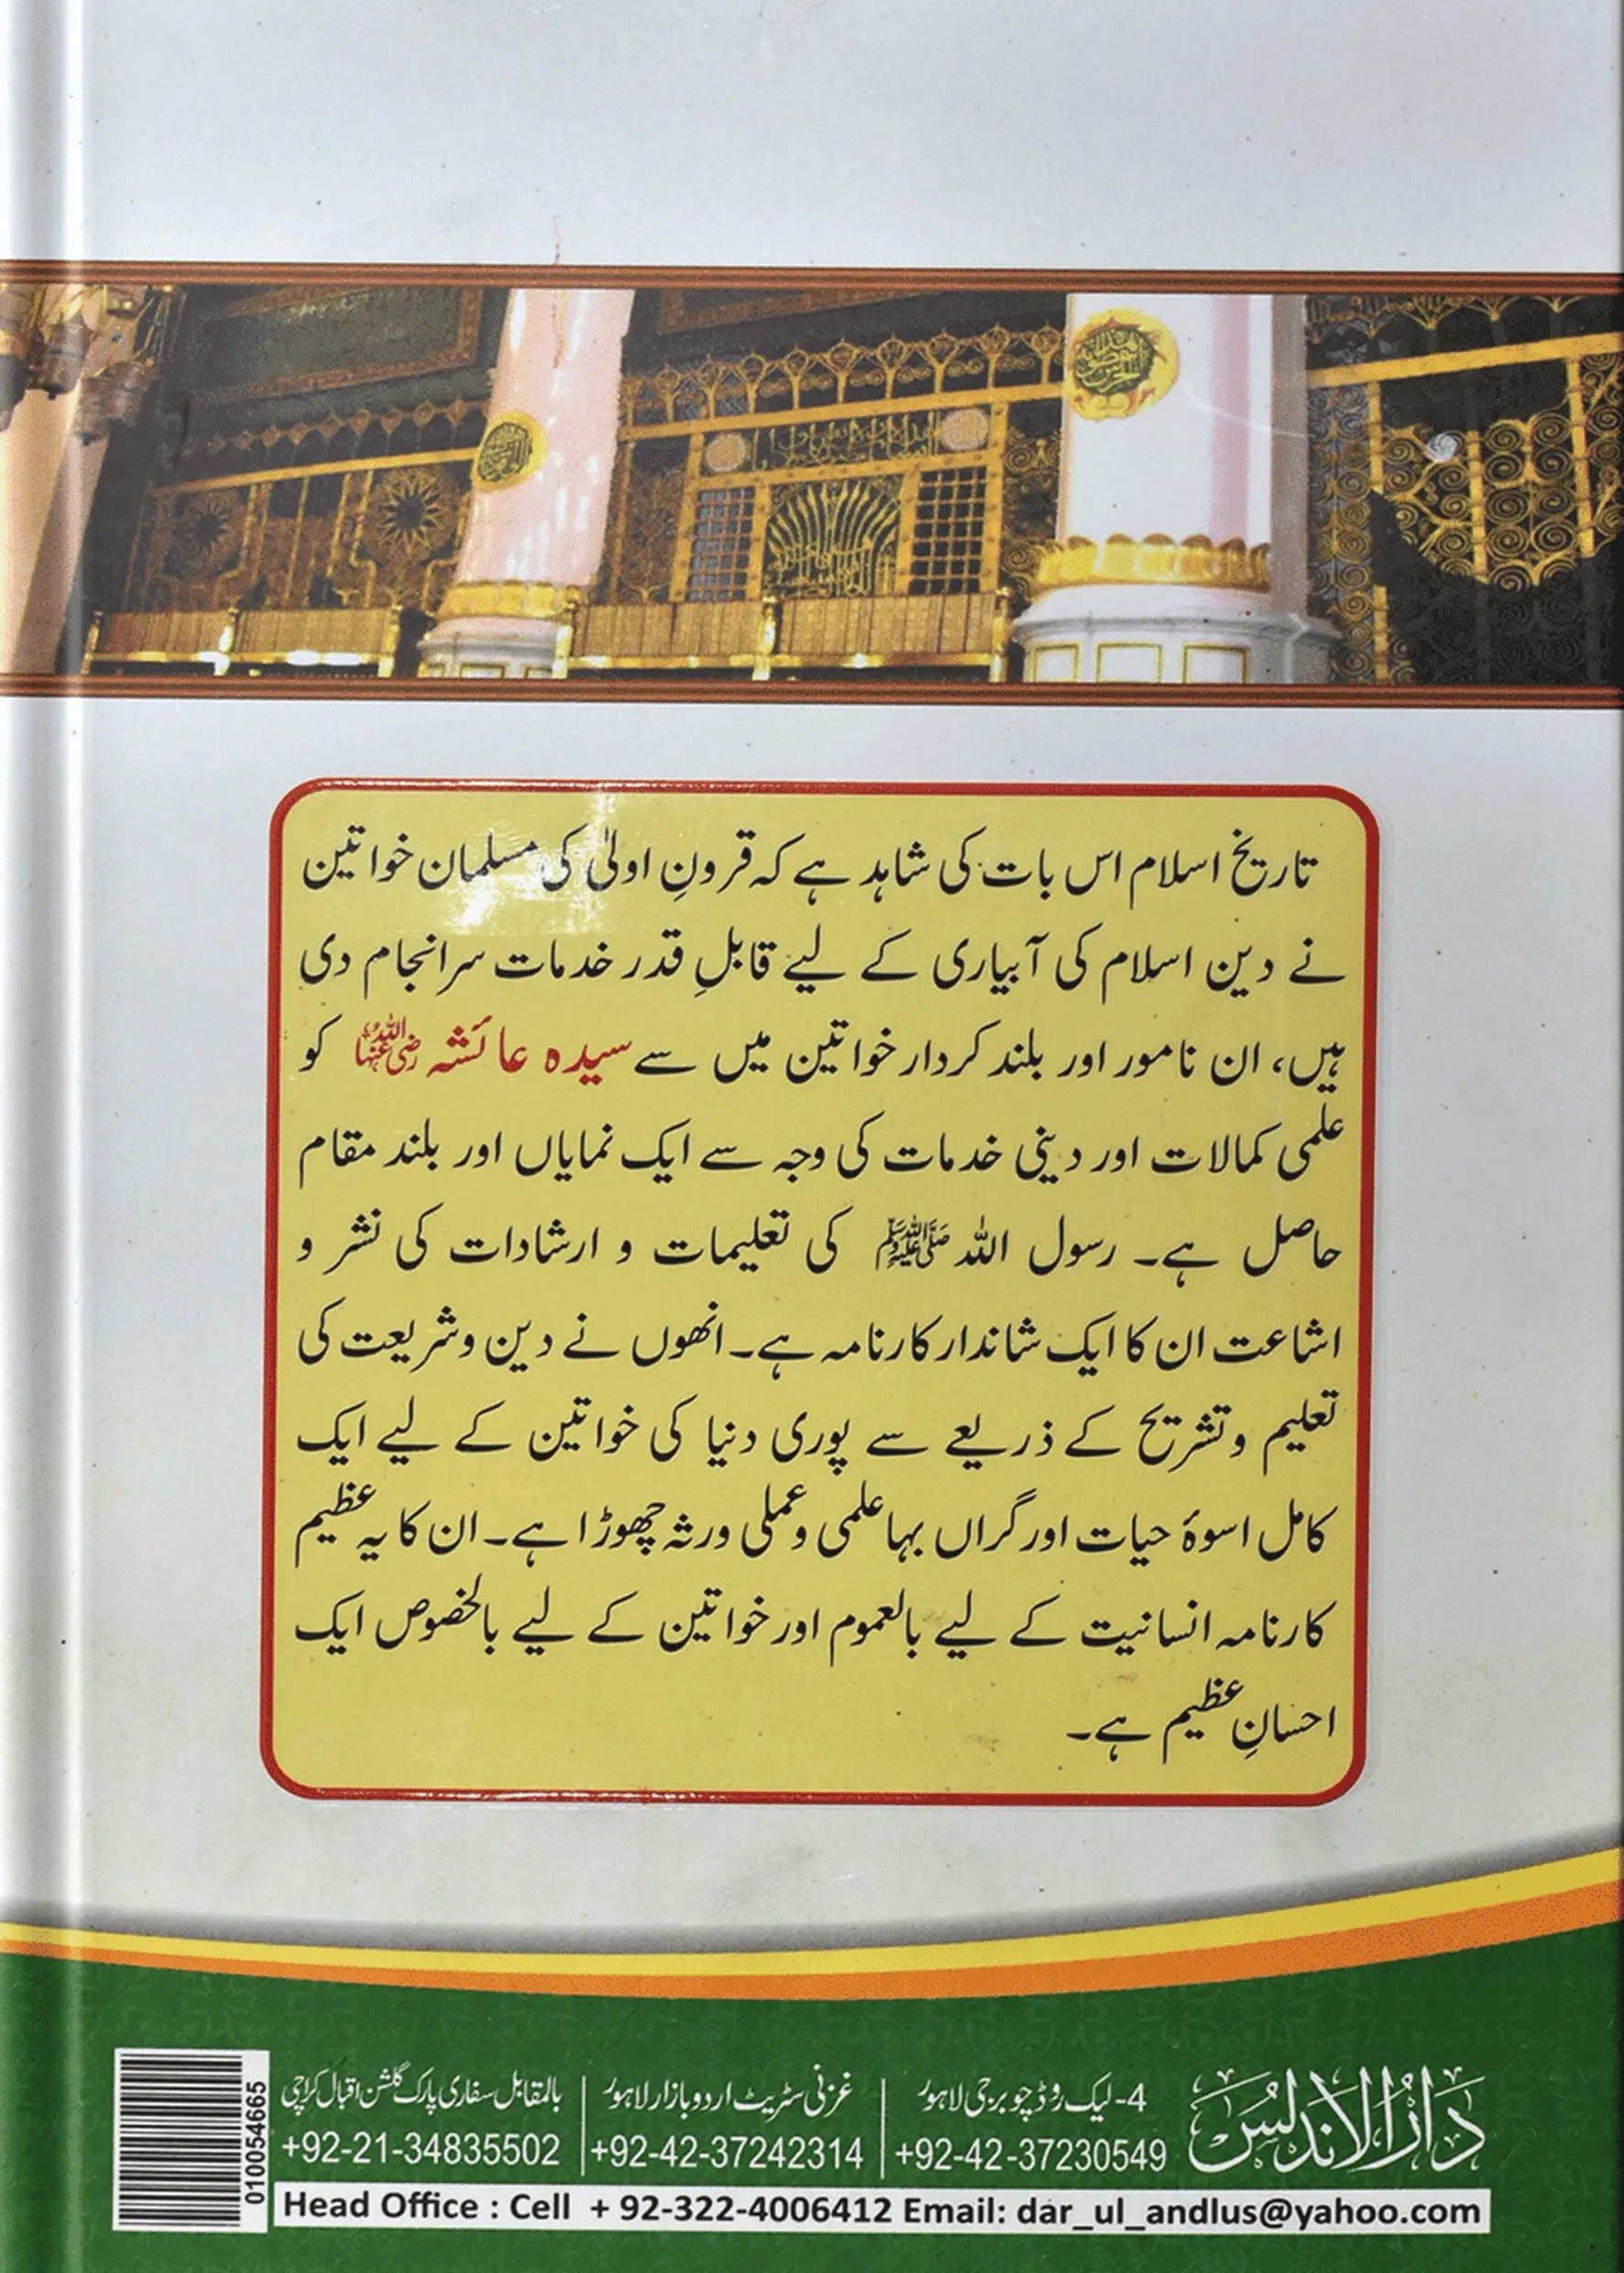 تاریخ اسلام اس بات کی شاہد ہے کہ قرونِ اولیٰ کی مسلمان خواتین
نے دین اسلام کی آبیاری کے لیے قابلِ قدر خدمات سرانجام دی
ہیں، ان نامور اور بلند کردار خواتین میں سے سیدہ عائشہ رضی اللہ عنہا کو
علمی کمالات اور دینی خدمات کی وجہ سے ایک نمایاں اور بلند مقام
حاصل ہے۔ رسول اللہ ﷺ کی تعلیمات و ارشادات کی نشر و
اشاعت ان کا ایک شاندار کارنامہ ہے۔ انھوں نے دین و شریعت کی
تعلیم و تشریح کے ذریعے سے پوری دنیا کی خواتین کے لیے ایک
کامل اسوۂ حیات اور گراں بہا علمی و عملی ورثہ چھوڑا ہے۔ ان کا یہ عظیم
کارنامہ انسانیت کے لیے بالعموم اور خواتین کے لیے بالخصوص ایک
احسانِ عظیم ہے۔
دارالاندلس
4- لیک روڈ چوبرجی لاہور
+92-42-37230549
غزنی سٹریٹ اردو بازار لاہور
+92-42-37242314
بالمقابل سفاری پارک گلشن اقبال کراچی
+92-21-34835502
Head Office : Cell + 92-322-4006412 Email: dar_ul_andlus@yahoo.com
0100054665